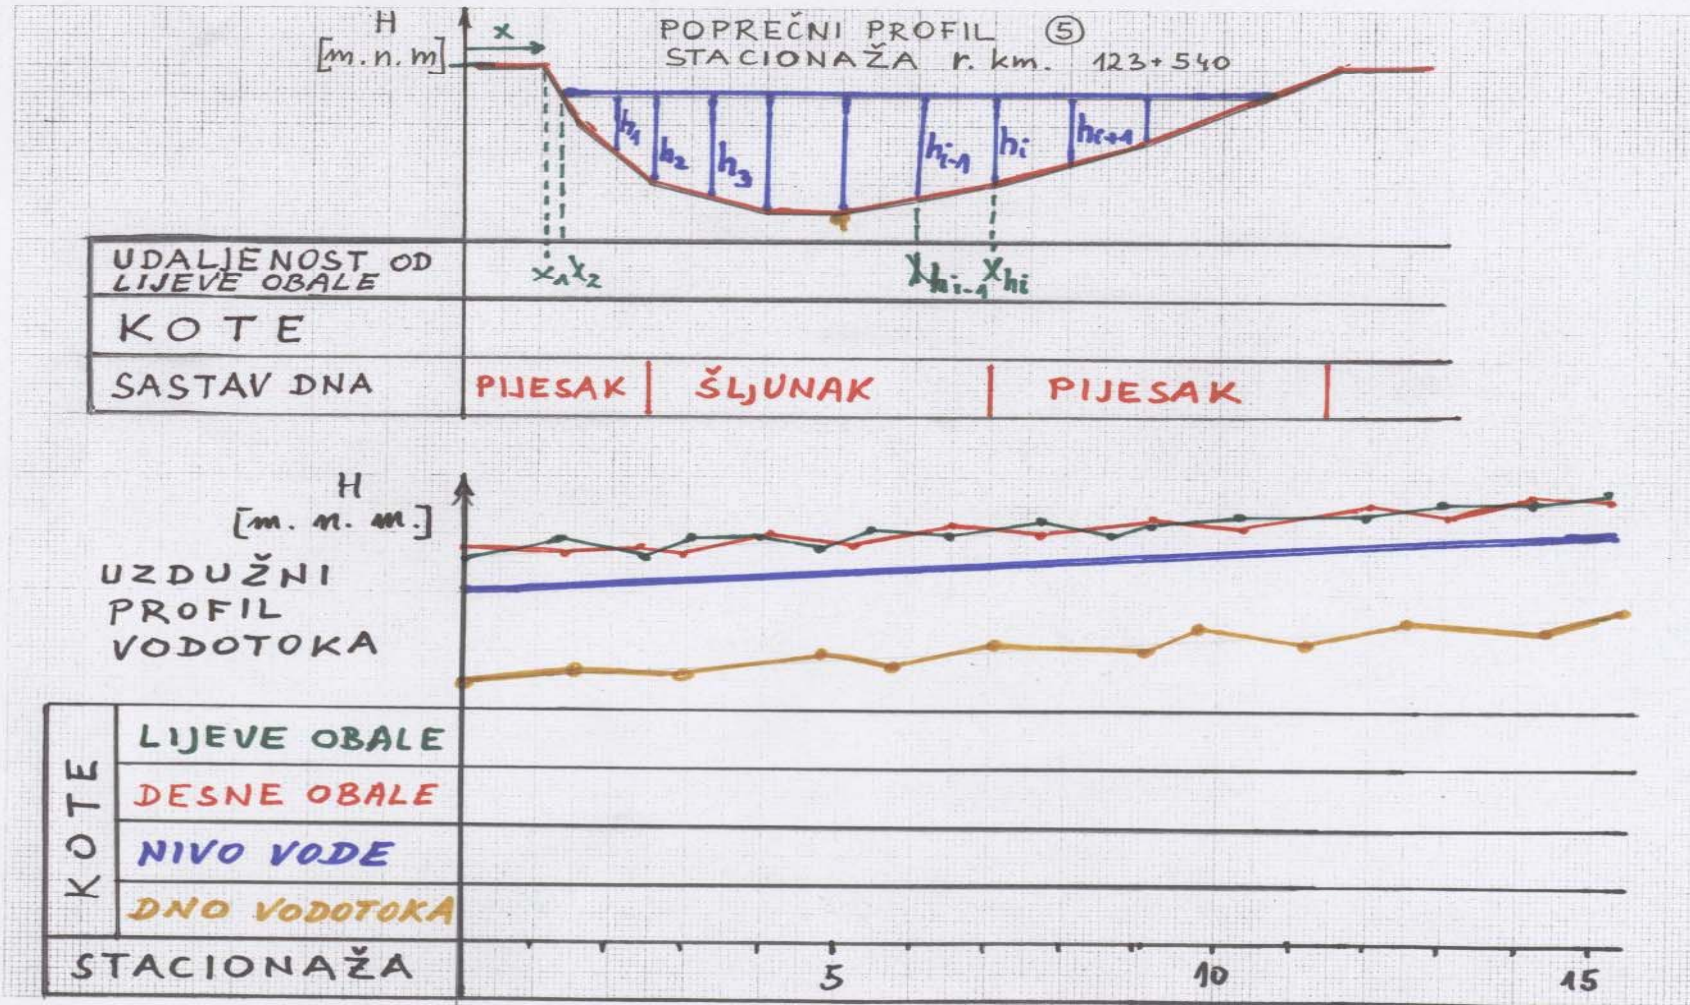 H
[m.n.m]
x
POPREČNI PROFIL ⑤
STACIONAŽA r. km. 123+540
h1
h2
h3
hi-1
hi
hi+1
UDALJENOST OD
LIJEVE OBALE
x1 x2 xhi-1 xhi
KOTE
SASTAV DNA PIJESAK ŠLJUNAK PIJESAK
H
[m.n.m.]
UZDUŽNI
PROFIL
VODOTOKA
KOTE
LIJEVE OBALE
DESNE OBALE
NIVO VODE
DNO VODOTOKA
STACIONAŽA 5 10 15